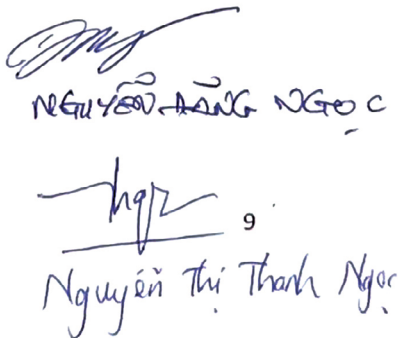 NGUYỄN ĐĂNG NGỌC
9
Nguyễn Thị Thanh Ngọc